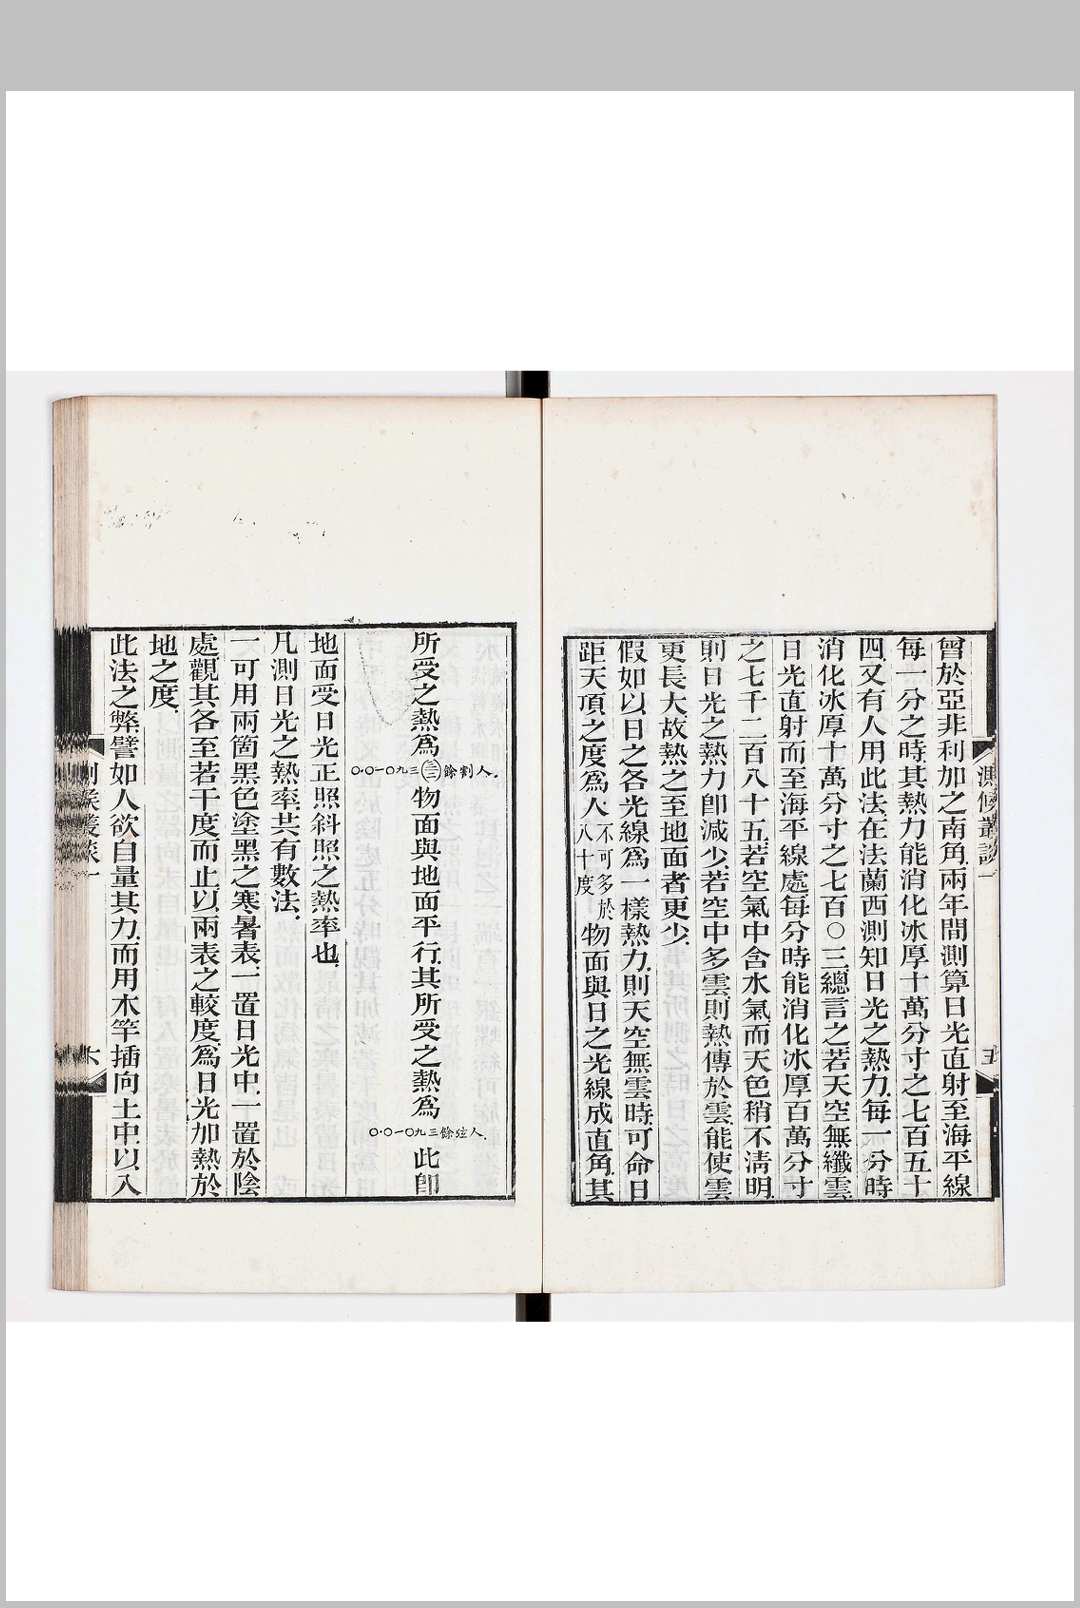 曾於亞非利加之南角兩年間測算日光直射至海平線
每一分之時其熱力能消化冰厚十萬分寸之七百五十
四又有人用此法在法蘭西測知日光之熱力每一分時
消化冰厚十萬分寸之七百〇三總言之若天空無纖雲
日光直射而至海平線處每分時能消化冰厚百萬分寸
之七千二百八十五若空氣中含水氣而天色稍不淸明
則日光之熱力卽減少若空中多雲則熱傳於雲能使雲
更長大故熱之至地面者更少
假如以日之各光線爲一樣熱力則天空無雲時可命日
距天頂之度爲人不可多於八十度物面與日之光線成直角其
測候叢談一
五
所受之熱爲
〇·〇一〇九三餘割人
物面與地面平行其所受之熱爲
〇·〇一〇九三餘弦人
此卽
地面受日光正照斜照之熱率也
凡測日光之熱率共有數法
一可用兩箇黑色塗黑之寒暑表一置日光中一置於陰
處觀其各至若干度而止以兩表之較度爲日光加熱於
地之度
此法之弊譬如人欲自量其力而用木竿插向土中以入
測候叢談一
六